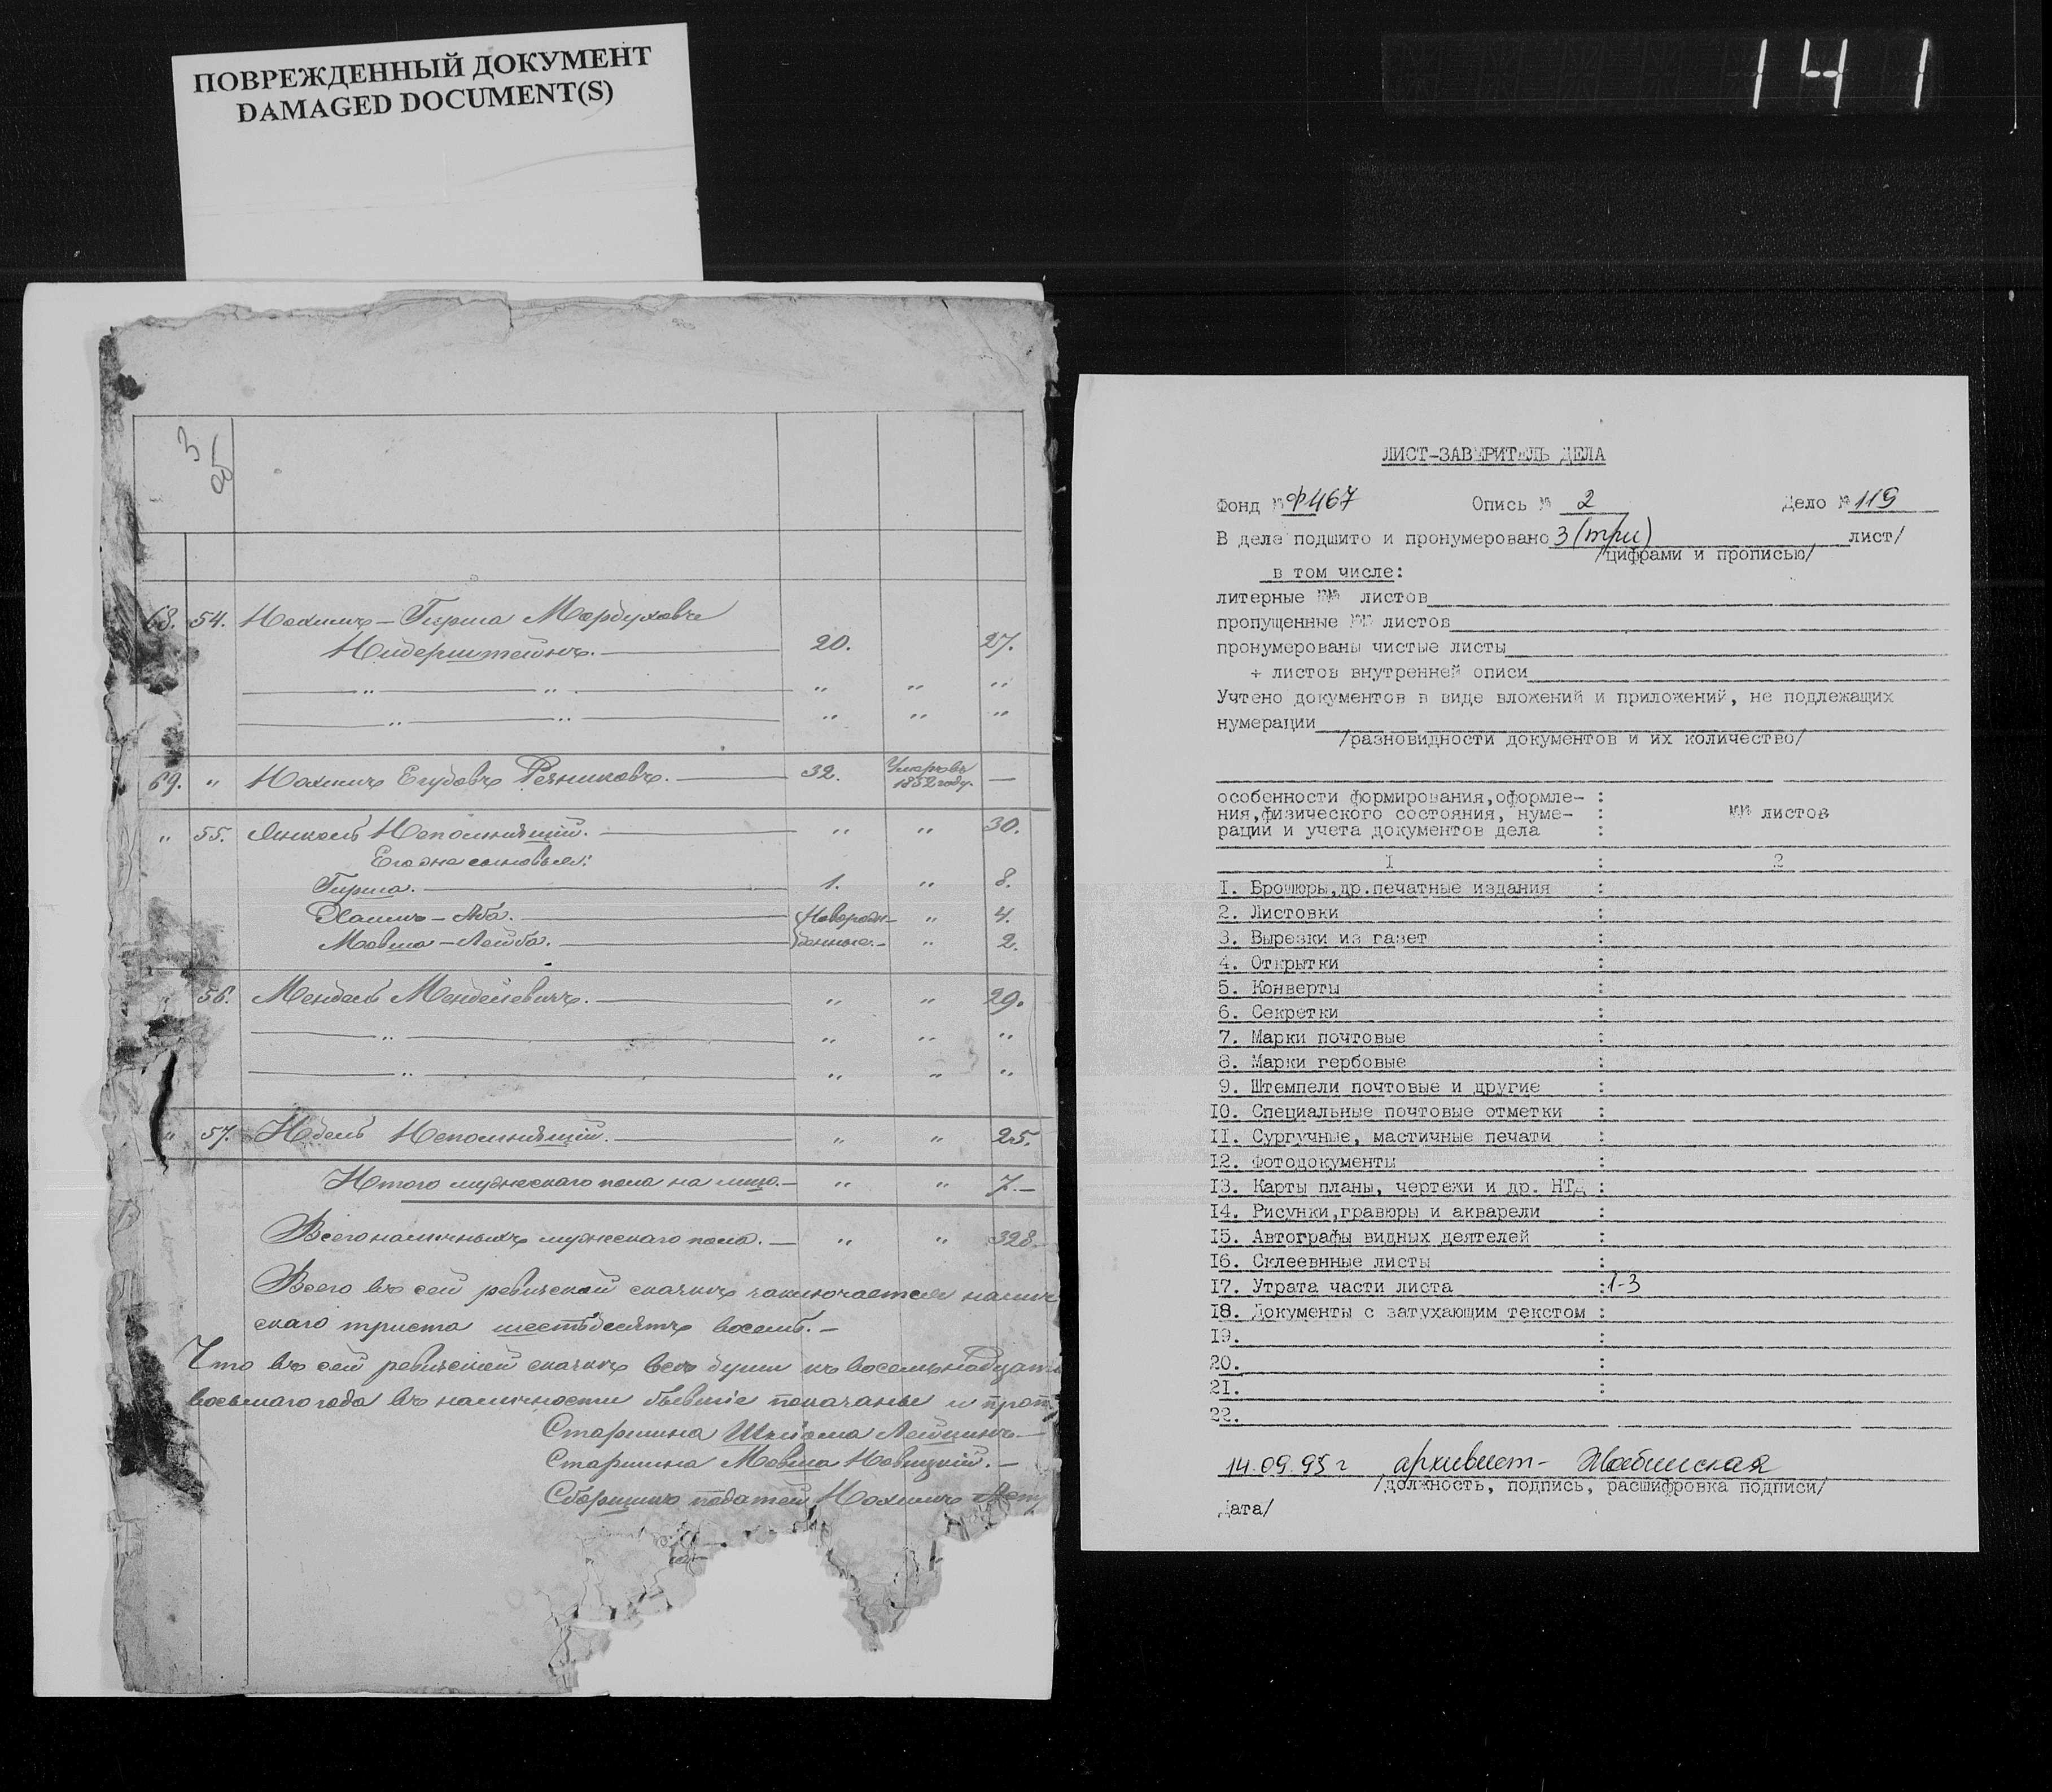 ПОВРЕЖДЕННЫЙ ДОКУМЕНТ
DAMAGED DOCUMENT(S)
141
3
об
68. 54. Нохимъ-Гирша Мордуховъ
Нидерштейнъ. 20. 27.
" " " " "
" " " " "
69. " Нохимъ Егудовъ Резниковъ. 32. Умеръ въ 1852 году. —
" 55. Янкель Непомнящій. " " 30.
Его же сыновья:
Гирша. 1. " 8.
Хаимъ-Аба. Новорож- " 4.
Мовша-Лейба. денные. " 2.
" 56. Мендель Менделевичъ. " " 29.
" " " "
" " " "
" 57. Идель Непомнящій. " " 25.
Итого мужескаго пола на лицо. " " 7.
Всего наличныхъ мужескаго пола. " " 328
Всего въ сей ревизской сказкѣ заключается
скаго триста шестьдесятъ восемь.
Что въ сей ревизской сказкѣ всѣ души къ восемьнадцать
восьмаго года въ наличности бывшіе показаны и
Старшина Шлиома
Старшина Мовша Новицкій.
Сборщикъ податей Нохимъ
ЛИСТ-ЗАВЕРИТЕЛЬ ДЕЛА
Фонд № Ф467 Опись № 2 Дело № 119
В дела подшито и пронумеровано 3 (три) лист/
/цифрами и прописью/
в том числе:
литерные №№ листов
пропущенные №№ листов
пронумерованы чистые листы
+ листов внутренней описи
Учтено документов в виде вложений и приложений, не подлежащих
нумерации
/разновидности документов и их количество/
особенности формирования,оформле- :
ния,физического состояния, нуме- : №№ листов
рации и учета документов дела :
1 : 2
1. Брошюры,др.печатные издания :
2. Листовки :
3. Вырезки из газет :
4. Открытки :
5. Конверты :
6. Секретки :
7. Марки почтовые :
8. Марки гербовые :
9. Штемпели почтовые и другие :
10. Специальные почтовые отметки :
11. Сургучные, мастичные печати :
12. Фотодокументы :
13. Карты планы, чертежи и др. НТД :
14. Рисунки,гравюры и акварели :
15. Автографы видных деятелей :
16. Склеевнные листы :
17. Утрата части листа : 1-3
18. Документы с затухающим текстом :
19. :
20. :
21. :
22.
14.09.95 г архивист-
/должность, подпись, расшифровка подписи/
Дата/